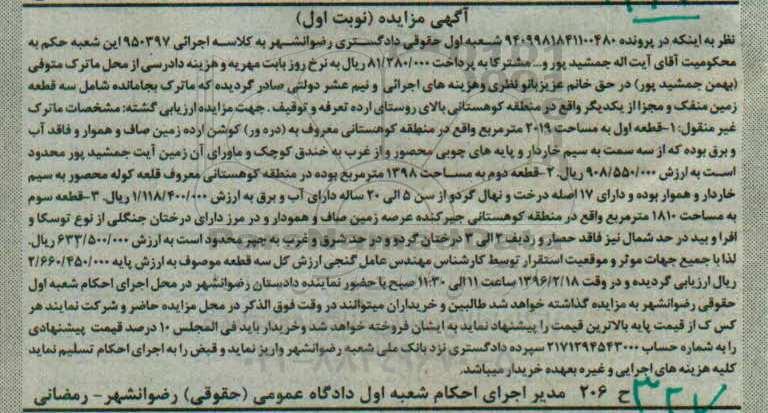 آگهی مزایده (نوبت اول)
نظر به اینکه در پرونده ۹۴۰۹۹۸۱۸۴۱۱۰۰۴۸۰ شعبه اول حقوقی دادگستری رضوانشهر به کلاسه اجرائی ۹۵۰۳۹۷ این شعبه حکم به
محکومیت آقای آیت اله جمشید پور و... مشترکا به پرداخت ۸۱/۳۸۰/۰۰۰ ریال به نرخ روز بابت مهریه و هزینه دادرسی از محل ماترک متوفی
(بهمن جمشید پور) در حق خانم عزیز بانو نظری وهزینه های اجرائی و نیم عشر دولتی صادر گردیده که ماترک بجامانده شامل سه قطعه
زمین منفک و مجزا از یکدیگر واقع در منطقه کوهستانی بالای روستای ارده تعرفه و توقیف. جهت مزایده ارزیابی گشته: مشخصات ماترک
غیر منقول: ۱-قطعه اول به مساحت ۲۰۱۹ مترمربع واقع در منطقه کوهستانی معروف به (دره ور) کوشن ارده زمین صاف و هموار و فاقد آب
و برق بوده که از سه سمت به سیم خاردار و پایه های چوبی محصور و از غرب به خندق کوچک و ماورای آن زمین آیت جمشید پور محدود
است به ارزش ۹۰۸/۵۵۰/۰۰۰ ریال. ۲-قطعه دوم به مساحت ۱۳۹۸ مترمربع بوده در منطقه کوهستانی معروف قلعه کوله محصور به سیم
خاردار و هموار بوده و دارای ۱۷ اصله درخت و نهال گردو از سن ۵ الی ۲۰ ساله دارای آب و برق به ارزش ۱/۱۱۸/۴۰۰/۰۰۰ ریال. ۳-قطعه سوم
به مساحت ۱۸۱۰ مترمربع واقع در منطقه کوهستانی جیرکنده عرصه زمین صاف و همودار و در مرز دارای درختان جنگلی از نوع توسکا و
افرا و بید در حد شمال نیز فاقد حصار و ردیف ۲ الی ۳ درختان گردو و در حد شرق و غرب به چپر محدود است به ارزش ۶۳۳/۵۰۰/۰۰۰ ریال.
لذا با جمیع جهات موثر و موقعیت استقرار توسط کارشناس مهندس عامل گنجی ارزش کل سه قطعه موصوف به ارزش پایه ۲/۶۶۰/۴۵۰/۰۰۰
ریال ارزیابی گردیده و در وقت ۱۳۹۶/۲/۱۸ ساعت ۱۱ الی ۱۱:۳۰ صبح با حضور نماینده دادستان رضوانشهر در محل اجرای احکام شعبه اول
حقوقی رضوانشهر به مزایده گذاشته خواهد شد طالبین و خریداران میتوانند در وقت فوق الذکر در محل مزایده حاضر و شرکت نمایند هر
کس ک از قیمت پایه بالاترین قیمت را پیشنهاد نماید به ایشان فروخته خواهد شد وخریدار باید فی المجلس ۱۰ درصد قیمت پیشنهادی
را به شماره حساب ۲۱۷۱۲۹۴۵۴۳۰۰۰ سپرده دادگستری نزد بانک ملی شعبه رضوانشهر واریز نماید و قبض را به اجرای احکام تسلیم نماید
کلیه هزینه های اجرایی و غیره بعهده خریدار میباشد.
ح ۲۰۶ مدیر اجرای احکام شعبه اول دادگاه عمومی (حقوقی) رضوانشهر- رمضانی